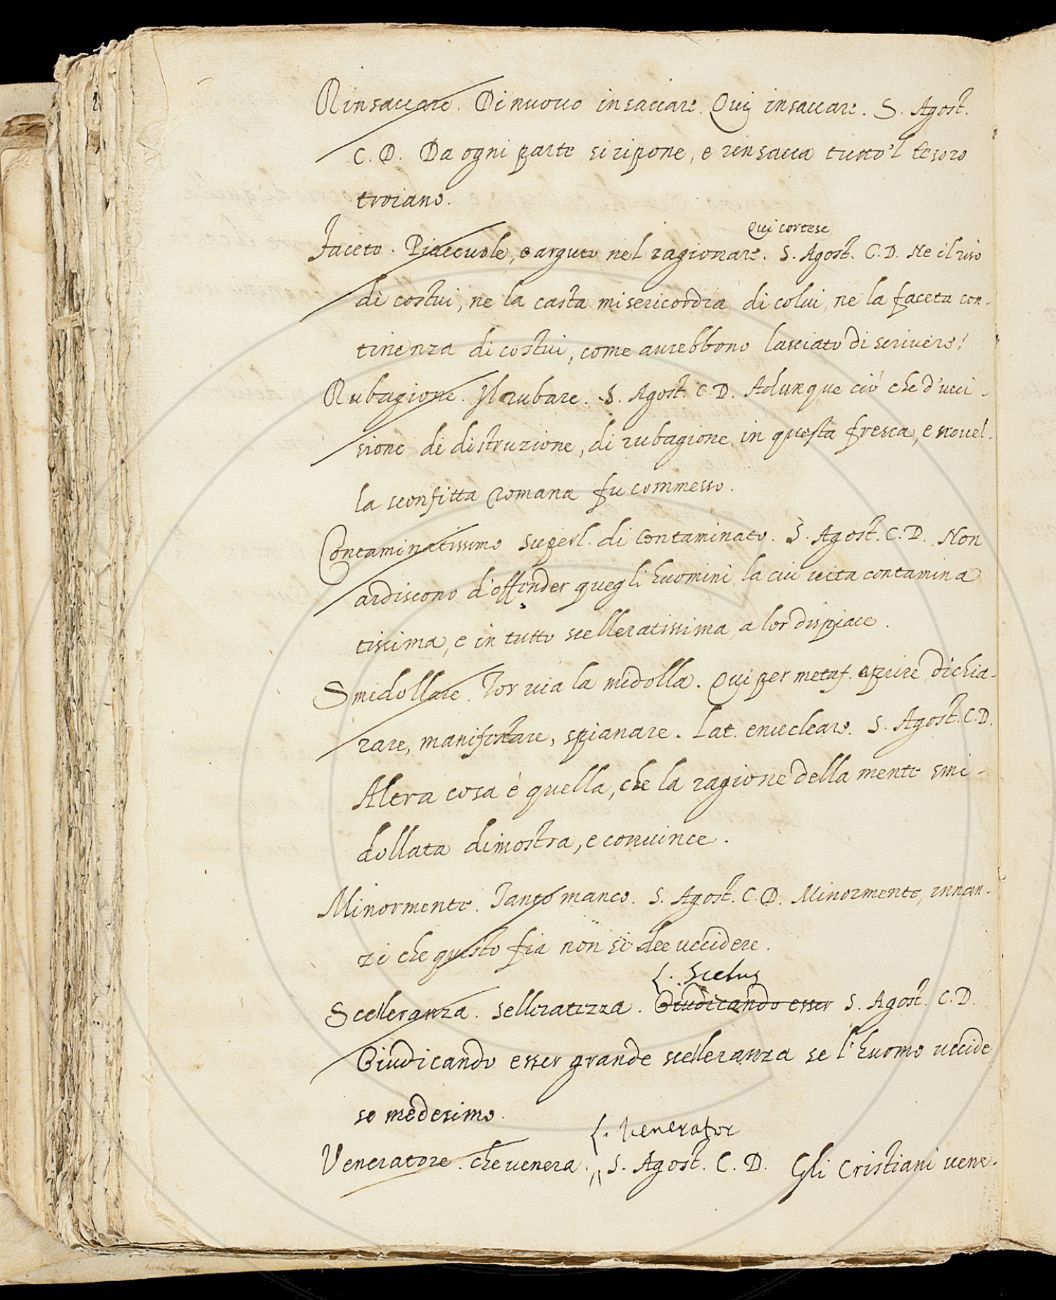 Rinsaccare. Di nuovo insaccare. Qui insaccare. S. Agost.
C. D. Da ogni parte si ripone, e rinsacca tutto'l tesoro
troiano.
Qui cortese
Faceto. Piacevole, e arguto nel ragionare. S. Agost. C. D. Ne il riso
di costui, ne la casta misericordia di colui, ne la faceta con-
tinenza di costui, come aurebbono lasciato di scrivere!
Rubagione. Il rubare. S. Agost. C. D. Adunque ciò che d'ucci-
sione di distruzione, di rubagione in questa fresca, e novel-
la sconfitta romana fu commesso.
Contaminatissimo superl. di Contaminato. S. Agost. C. D. Non
ardiscono d'offender quegli huomini, la cui vita contamina
tissima, e in tutto scelleratissima a lor dispiace.
Smidollare. Tor via la midolla. Qui per metaf. aprire, dichia-
rare, manifestare, spianare. Lat. enucleare. S. Agost. C. D.
Altra cosa è quella, che la ragione della mente smi-
dollata dimostra, e convince.
Minormente. Tanto manco. S. Agost. C. D. Minormente, innan-
zi che questo fia non si dee uccidere.
l. Scelus
Scelleranza. Selleratezza. Giudicando esser S. Agost. C. D.
Giudicando esser grande scelleranza se l'huomo uccide
se medesimo.
l. Venerator
Veneratore. che venera. S. Agost. C. D. Gli Cristiani vene-